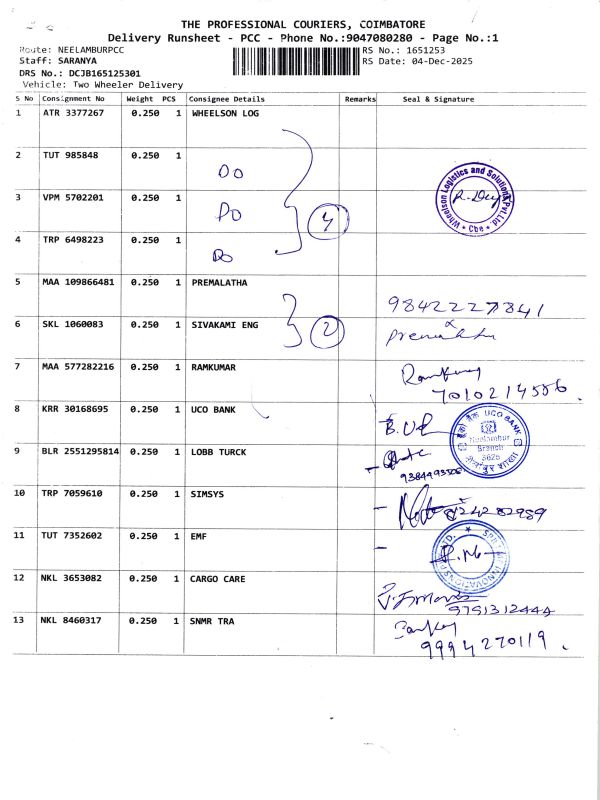 THE PROFESSIONAL COURIERS, COIMBATORE
Delivery Runsheet - PCC - Phone No.:9047080280 - Page No.:1
Route: NEELAMBURPCC
RS No.: 1651253
Staff: SARANYA
RS Date: 04-Dec-2025
DRS No.: DCJB165125301
Vehicle: Two Wheeler Delivery
S No Consignment No Weight PCS Consignee Details Remarks Seal & Signature
1 ATR 3377267 0.250 1 WHEELSON LOG
2 TUT 985848 0.250 1 Do
3 VPM 5702201 0.250 1 Do
4 TRP 6498223 0.250 1 Do
4
Wheelson Logistics and Solutions Pvt Ltd
* Cbe *
5 MAA 109866481 0.250 1 PREMALATHA
9842227841
6 SKL 1060083 0.250 1 SIVAKAMI ENG
2
Premalatha
7 MAA 577282216 0.250 1 RAMKUMAR
Ramkumar
7010214556.
8 KRR 30168695 0.250 1 UCO BANK
UCO BANK
Neelambur
Branch
9 BLR 2551295814 0.250 1 LOBB TURCK
10 TRP 7059610 0.250 1 SIMSYS
11 TUT 7352602 0.250 1 EMF
12 NKL 3653082 0.250 1 CARGO CARE
9791312444
13 NKL 8460317 0.250 1 SNMR TRA
9994270119.